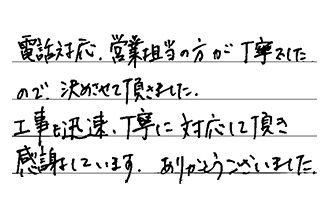 電話対応、営業担当の方が丁寧でした
ので、決めさせて頂きました。
工事も迅速、丁寧に対応して頂き
感謝しています。ありがとうございました。